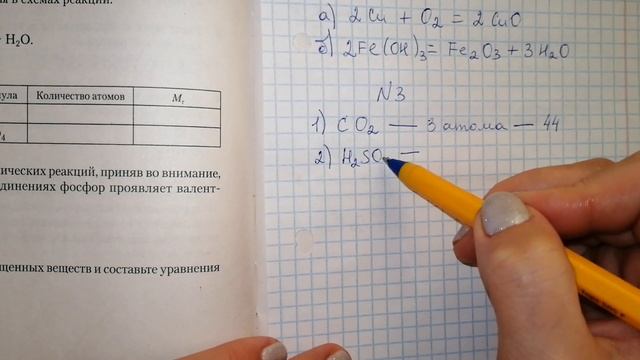 в схемах реакций.
H₂O.
Количество атомов Mᵣ
ических реакций, приняв во внимание,
динениях фосфор проявляет валент-
щенных веществ и составьте уравнения
а) 2 Cu + O₂ = 2 CuO
б) 2Fe(OH)₃ = Fe₂O₃ + 3 H₂O
N3
1) CO₂ — 3 атома — 44
2) H₂SO —